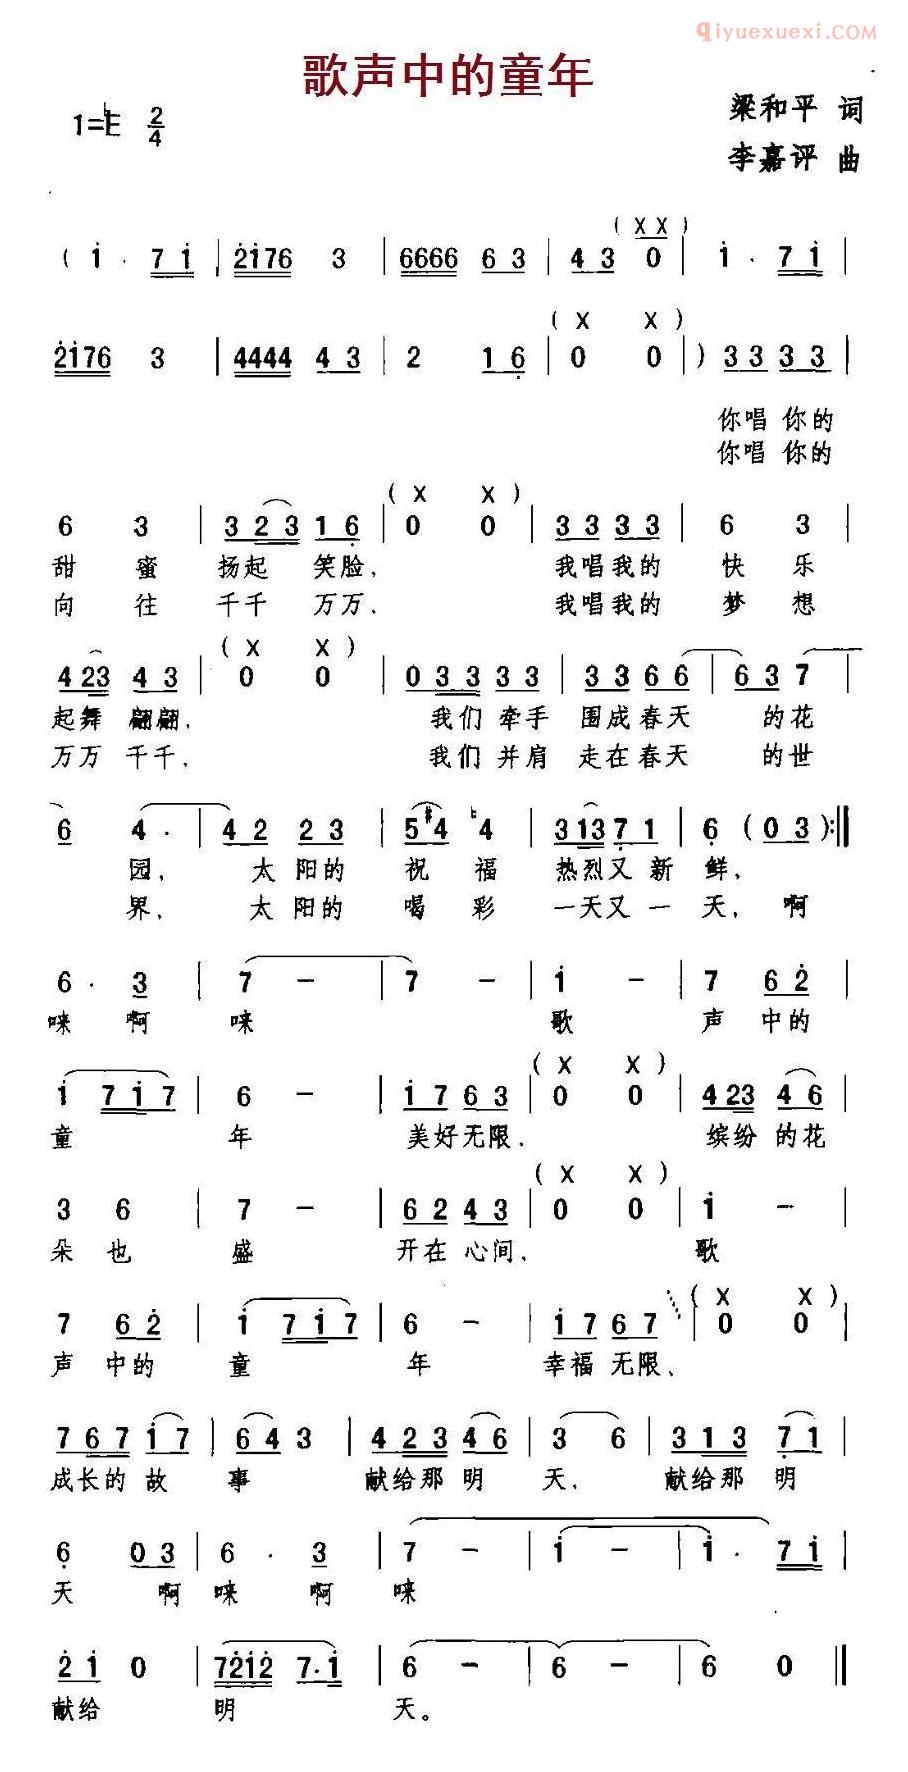 qiyuexuexi.COM
歌声中的童年
1=♭E 2/4
梁和平 词
李嘉评 曲
( X X )
( i · 7 i | 2i76 3 | 6666 6 3 | 4 3 0 | i · 7 i |
( X X )
2i76 3 | 4444 4 3 | 2 1 6 | 0 0 | ) 3 3 3 3 |
你唱 你的
你唱 你的
( X X )
6 3 | 3 2 3 1 6 | 0 0 | 3 3 3 3 | 6 3 |
甜 蜜 扬起 笑脸, 我唱我的 快 乐
向 往 千千 万万, 我唱我的 梦 想
( X X )
4 23 4 3 | 0 0 | 0 3 3 3 3 | 3 3 6 6 | 6 3 7 |
起舞 翩翩, 我们 牵手 围成春天 的花
万万 千千, 我们 并肩 走在春天 的世
6 4 · | 4 2 2 3 | 5 #4 ♮4 | 3 13 7 1 | 6 ( 0 3 ) :||
园, 太 阳的 祝 福 热烈又 新 鲜,
界, 太 阳的 喝 彩 一天又 一 天, 啊
6 · 3 | 7 – | 7 – | i – | 7 6 2 |
唻 啊 唻 歌 声 中的
( X X )
i 7 i 7 | 6 – | i 7 6 3 | 0 0 | 4 23 4 6 |
童 年 美好无限, 缤纷 的花
( X X )
3 6 | 7 – | 6 2 4 3 | 0 0 | i – |
朵 也 盛 开在 心间, 歌
( X X )
7 6 2 | i 7 i 7 | 6 – | i 7 6 7 | 0 0 |
声 中的 童 年 幸福 无限、
7 6 7 i 7 | 6 4 3 | 4 2 3 4 6 | 3 6 | 3 1 3 7 1 |
成长的 故 事 献给那 明 天, 献给那 明
6 0 3 | 6 · 3 | 7 – | i – | i · 7 i |
天 啊 唻 啊 唻
2 i 0 | 72i2 7 · i | 6 – | 6 – | 6 0 ||
献给 明 天。